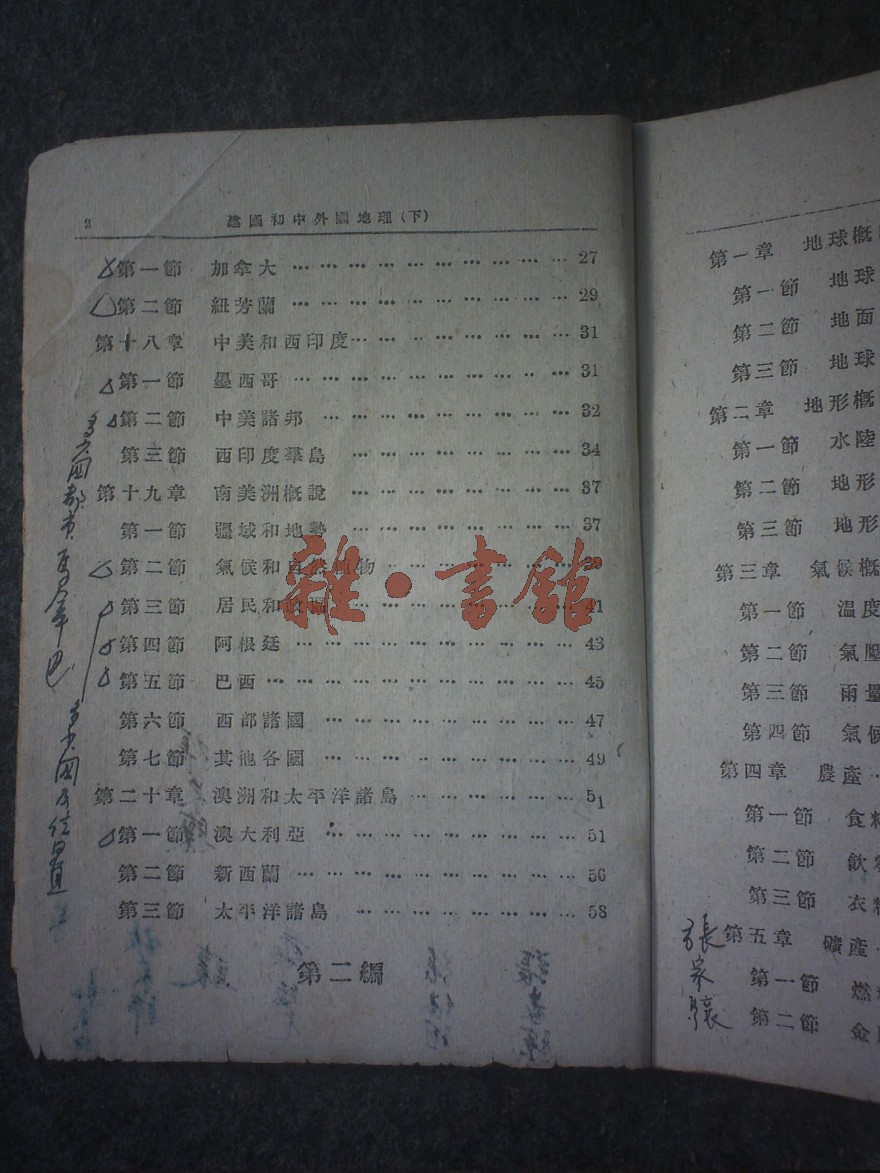 2
建國初中外國地理(下)
第一節 加拿大 … … … … … … … … … … 27
第二節 紐芳蘭 … … … … … … … … … … 29
第十八章 中美和西印度… … … … … … … … 31
第一節 墨西哥 … … … … … … … … … … 31
第二節 中美諸邦 … … … … … … … … … 32
第三節 西印度羣島 … … … … … … … … 34
第十九章 南美洲概說 … … … … … … … … 37
第一節 疆域和地勢 … … … … … … … … 37
第二節 氣候和自然植物 … … … … … …
第三節 居民和 … … … … … … … … 41
第四節 阿根廷 … … … … … … … … … … 43
第五節 巴西… … … … … … … … … … … 45
第六節 西部諸國 … … … … … … … … … 47
第七節 其他各國 … … … … … … … … … 49
第二十章 澳洲和太平洋諸島 … … … … … … 51
第一節 澳大利亞 … … … … … … … … … 51
第二節 新西蘭 … … … … … … … … … … 56
第三節 太平洋諸島 … … … … … … … … 58
第二編
雜·書館
第一章 地球概
第一節 地球
第二節 地面
第三節 地球
第二章 地形概
第一節 水陸
第二節 地形
第三節 地形
第三章 氣候概
第一節 溫度
第二節 氣壓
第三節 雨量
第四節 氣候
第四章 農產
第一節 食糧
第二節 飲料
第三節 衣
第五章 礦產
第一節 燃
第二節 金